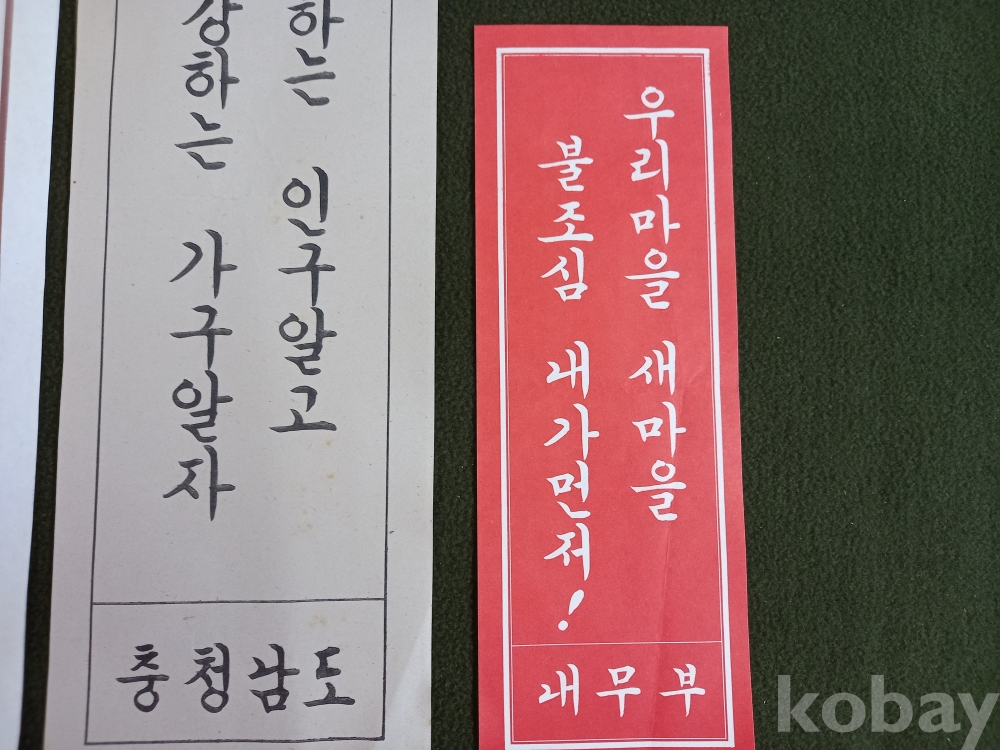 하는 인구알고
하는 가구알자
충청남도
우리마을 새마을
불조심 내가먼저!
내무부
kobay